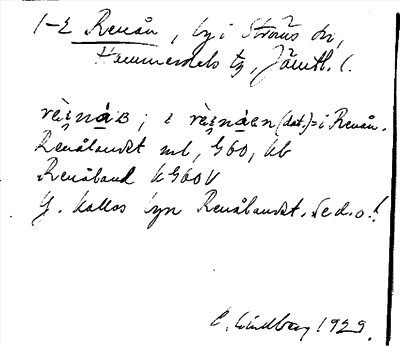 1-2 Renån, by i Ströms sn,
Hammerdals tg, Jämtl. l.
rèi̯nåɛ; i rèi̯nåɛn (dat.) = i Renån.
Renålandet ml, G60, kb
Renåland kG60V
G. kallas byn Renålandet. Se d. o.!
C. Lindberg 1929.